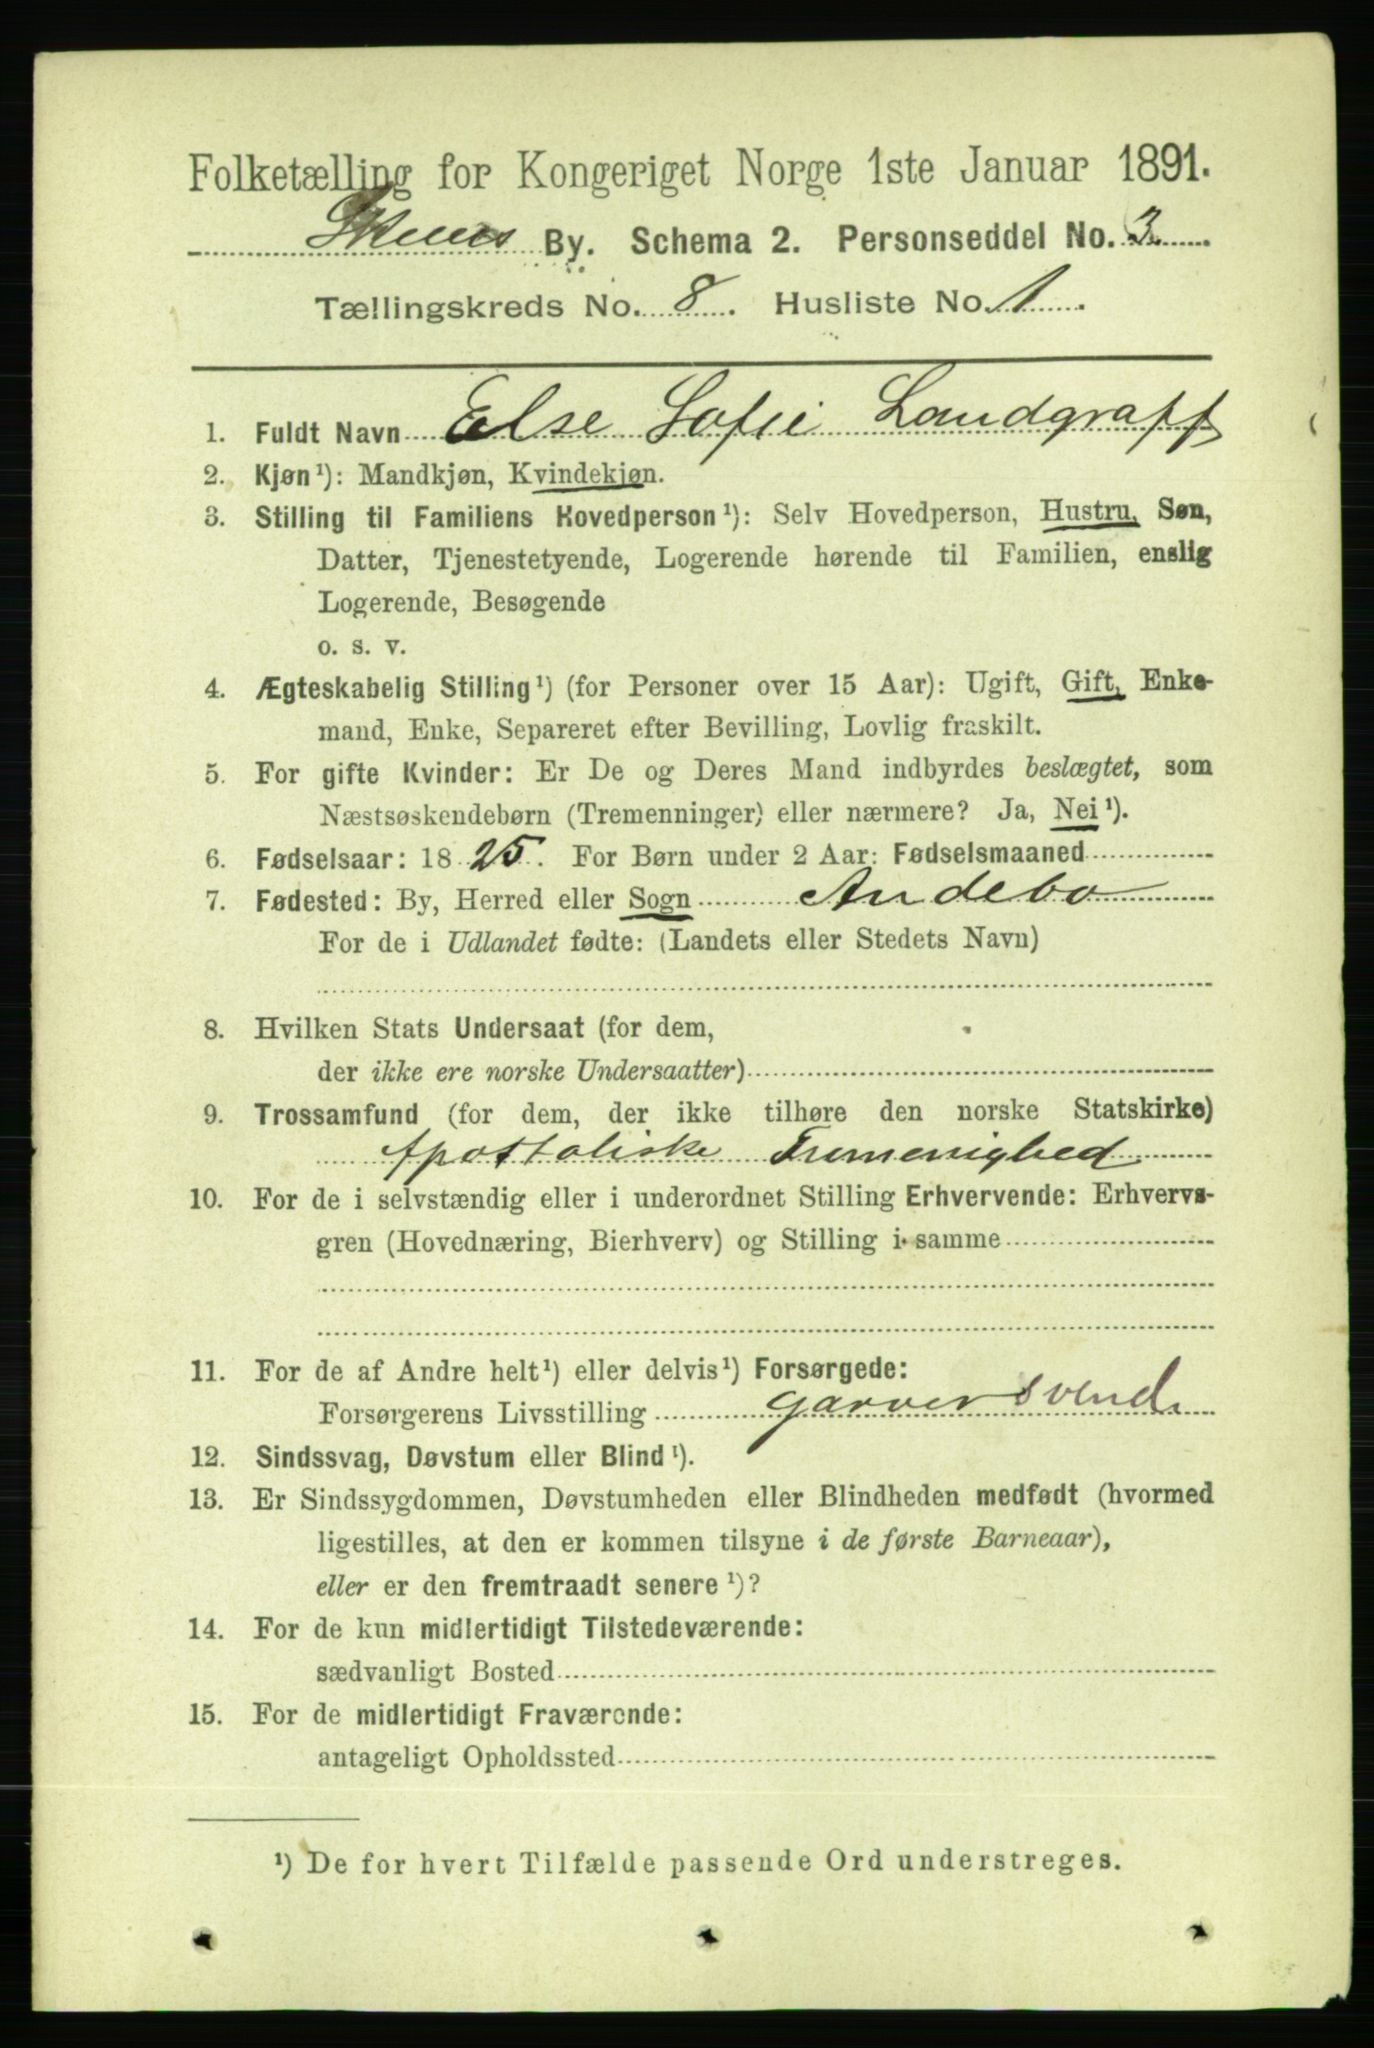 Folketælling for Kongeriget Norge 1ste Januar 1891.
Skiens By. Schema 2. Personseddel No. 3
Tællingskreds No. 8. Husliste No. 1.
1. Fuldt Navn Else Sofie Landgraff
2. Kjøn¹): Mandkjøn, Kvindekjøn.
3. Stilling til Familiens Hovedperson¹): Selv Hovedperson, Hustru, Søn,
Datter, Tjenestetyende, Logerende hørende til Familien, enslig
Logerende, Besøgende
o. s. v.
4. Ægteskabelig Stilling¹) (for Personer over 15 Aar): Ugift, Gift, Enke-
mand, Enke, Separeret efter Bevilling, Lovlig fraskilt.
5. For gifte Kvinder: Er De og Deres Mand indbyrdes beslægtet, som
Næstsøskendebørn (Tremenninger) eller nærmere? Ja, Nei¹).
6. Fødselsaar: 1825. For Børn under 2 Aar: Fødselsmaaned
7. Fødested: By, Herred eller Sogn Andebo
For de i Udlandet fødte: (Landets eller Stedets Navn)
8. Hvilken Stats Undersaat (for dem,
der ikke ere norske Undersaatter)
9. Trossamfund (for dem, der ikke tilhøre den norske Statskirke)
Apostoliske
10. For de i selvstændig eller i underordnet Stilling Erhvervende: Erhvervs-
gren (Hovednæring, Bierhverv) og Stilling i samme
11. For de af Andre helt¹) eller delvis¹) Forsørgede:
Forsørgerens Livsstilling garver svend.
12. Sindssvag, Døvstum eller Blind¹).
13. Er Sindssygdommen, Døvstumheden eller Blindheden medfødt (hvormed
ligestilles, at den er kommen tilsyne i de første Barneaar),
eller er den fremtraadt senere¹)?
14. For de kun midlertidigt Tilstedeværende:
sædvanligt Bosted
15. For de midlertidigt Fraværende:
antageligt Opholdssted
¹) De for hvert Tilfælde passende Ord understreges.